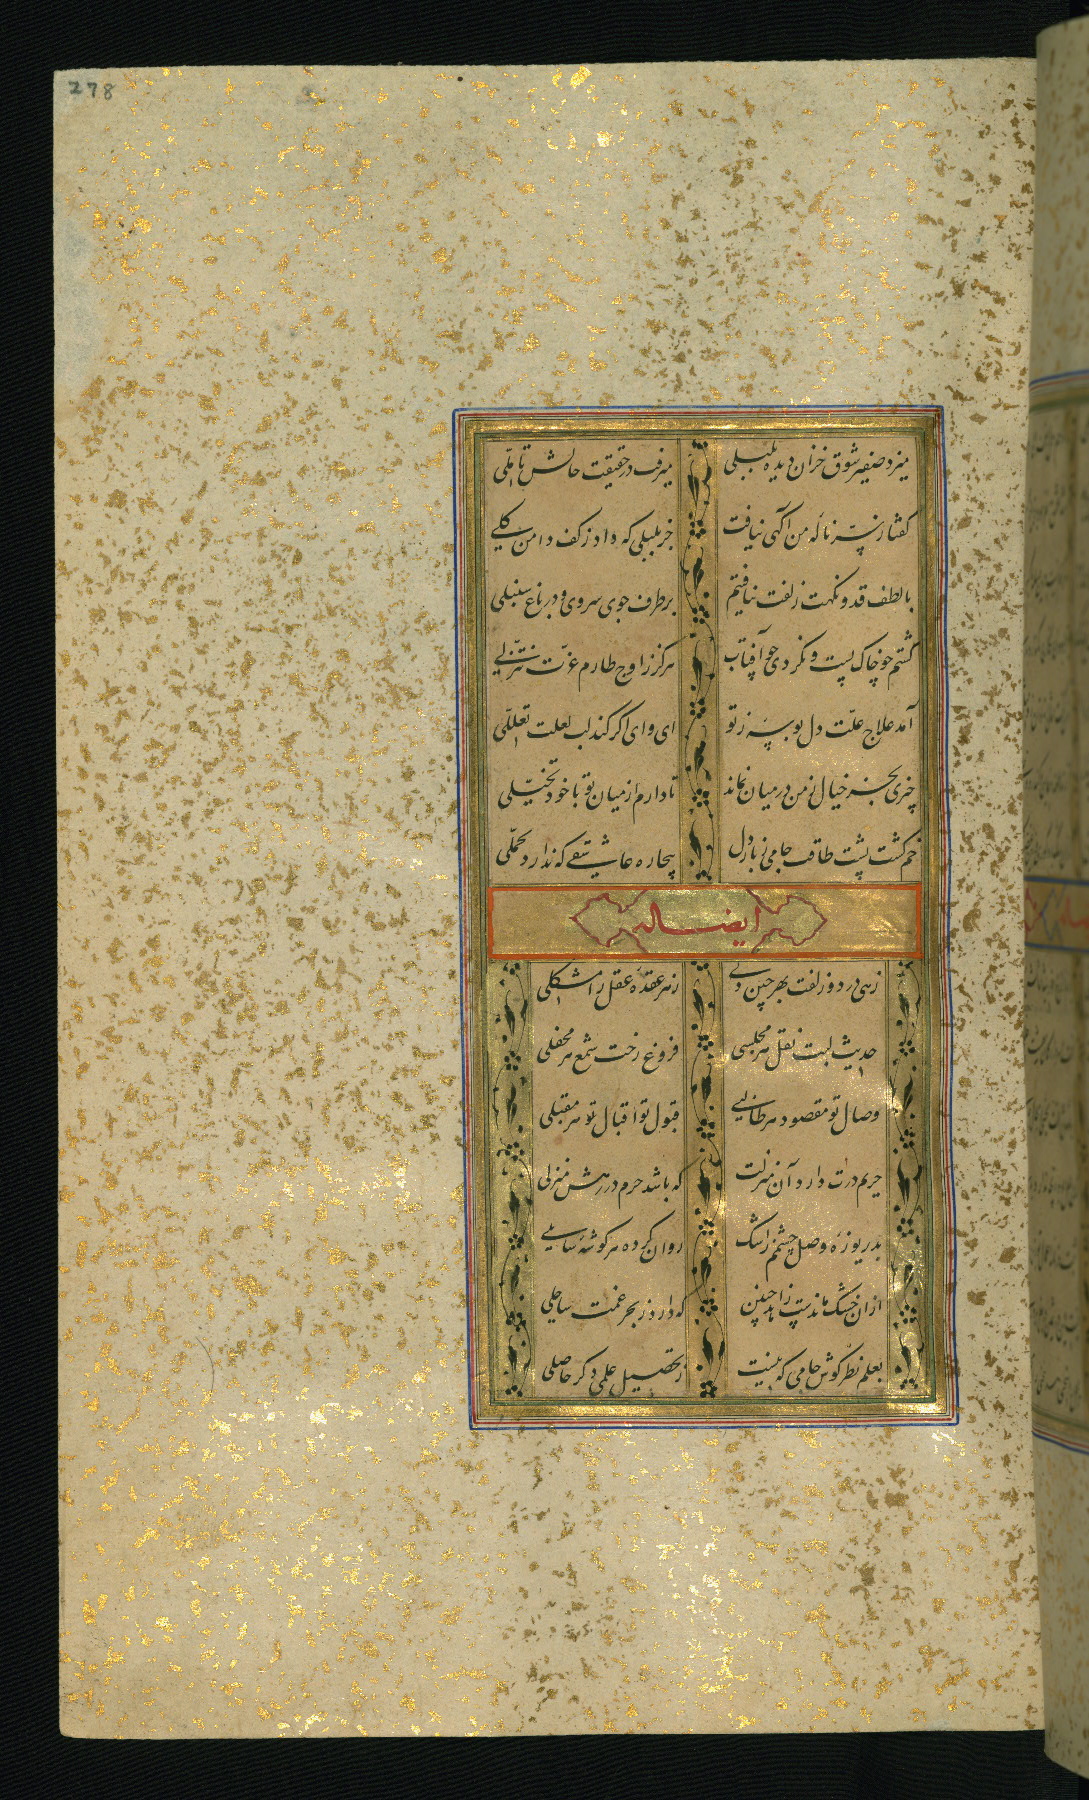 278
میزد صفیر شوق خزان دیده بلبلی میرفت در حقیقت حالش تاملی
گفتا ز سر ناله من آگهی نیافت جز بلبلی که داد ز کف دامن گلی
با لطف قد و نکهت زلفت نیافتیم بر طرف جوی سروی و در باغ سنبلی
گشتم چو خاک پست و نکردی چو آفتاب هرگز ز اوج طارم عزت تنزلی
آمد علاج علت دل بوسه ز تو ای وای اگر کند لب لعلت تعللی
چیزی بجز خیال ز من در میان نماند تا دارم از میان تو با خود تخیلی
خم گشت پشت طاقت جامی ز بار دل بیچاره عاشقی که ندارد تحملی
ایضا له
زهی در دو زلفت بهر چین دلی ز هر عقده عقل را مشکلی
حدیث لبت نقل هر مجلسی فروغ رخت شمع هر محفلی
وصال تو مقصود هر طالبی قبول تو اقبال هر مقبلی
حریم درت دارد آن منزلت که باشد حرم در رهش منزلی
بدریوزه وصل چشمم ز اشک روان کرده هر گوشه سایلی
ازان خشک ماندست زاهد چنین که دارد ز بحر غمت ساحلی
بعلم نظر کوش جامی که نیست ز تحصیل علمی دگر حاصلی